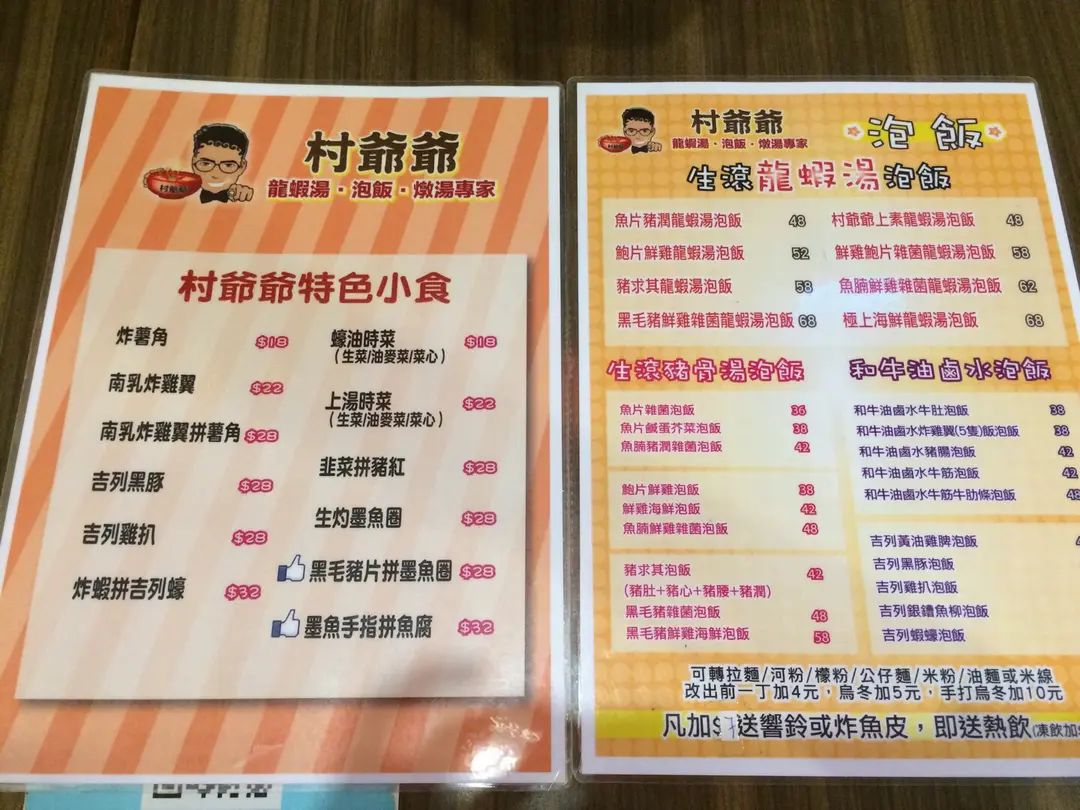 村爺爺
龍蝦湯・泡飯・燉湯專家
村爺爺
村爺爺特色小食
炸薯角 $18
南乳炸雞翼 $22
南乳炸雞翼拼薯角 $28
吉列黑豚 $28
吉列雞扒 $28
炸蝦拼吉列蠔 $32
蠔油時菜 $18
(生菜/油麥菜/菜心)
上湯時菜 $22
(生菜/油麥菜/菜心)
韭菜拼豬紅 $28
生灼墨魚圈 $28
黑毛豬片拼墨魚圈 $28
墨魚手指拼魚腐 $32
村爺爺
龍蝦湯・泡飯・燉湯專家
泡飯
生滾龍蝦湯泡飯
魚片豬潤龍蝦湯泡飯 48
鮑片鮮雞龍蝦湯泡飯 52
豬求其龍蝦湯泡飯 58
黑毛豬鮮雞雜菌龍蝦湯泡飯 68
村爺爺上素龍蝦湯泡飯 48
鮮雞鮑片雜菌龍蝦湯泡飯 58
魚腩鮮雞雜菌龍蝦湯泡飯 62
極上海鮮龍蝦湯泡飯 68
生滾豬骨湯泡飯
魚片雜菌泡飯 36
魚片鹹蛋芥菜泡飯 38
魚腩豬潤雜菌泡飯 42
鮑片鮮雞泡飯 38
鮮雞海鮮泡飯 42
魚腩鮮雞雜菌泡飯 48
豬求其泡飯 42
(豬肚+豬心+豬腰+豬潤)
黑毛豬雜菌泡飯 48
黑毛豬鮮雞海鮮泡飯 58
和牛油鹵水泡飯
和牛油鹵水牛肚泡飯 38
和牛油鹵水炸雞翼(5隻)飯泡飯 38
和牛油鹵水豬腸泡飯 42
和牛油鹵水牛筋泡飯 42
和牛油鹵水牛筋牛肋條泡飯
吉列黃油雞脾泡飯
吉列黑豚泡飯
吉列雞扒泡飯
吉列銀鱈魚柳泡飯
吉列蝦蠔泡飯
可轉拉麵/河粉/檬粉/公仔麵/米粉/油麵或米線
改出前一丁加4元，烏冬加5元，手打烏冬加10元
凡加$7送響鈴或炸魚皮，即送熱飲(凍飲加